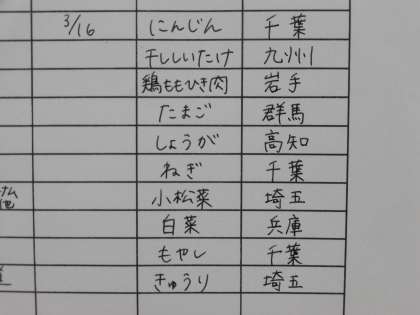 3/16 にんじん 千葉
干ししいたけ 九州
鶏ももひき肉 岩手
たまご 群馬
しょうが 高知
ねぎ 千葉
小松菜 埼玉
白菜 兵庫
もやし 千葉
きゅうり 埼玉